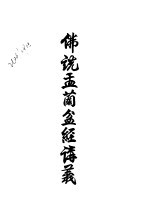 佛说盂蘭盆經講義